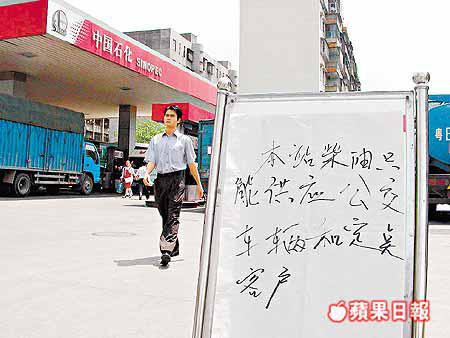 中国石化 SINOPEC
本站柴油只
能供应公交
车辆和定点
客户
粤
蘋果日報